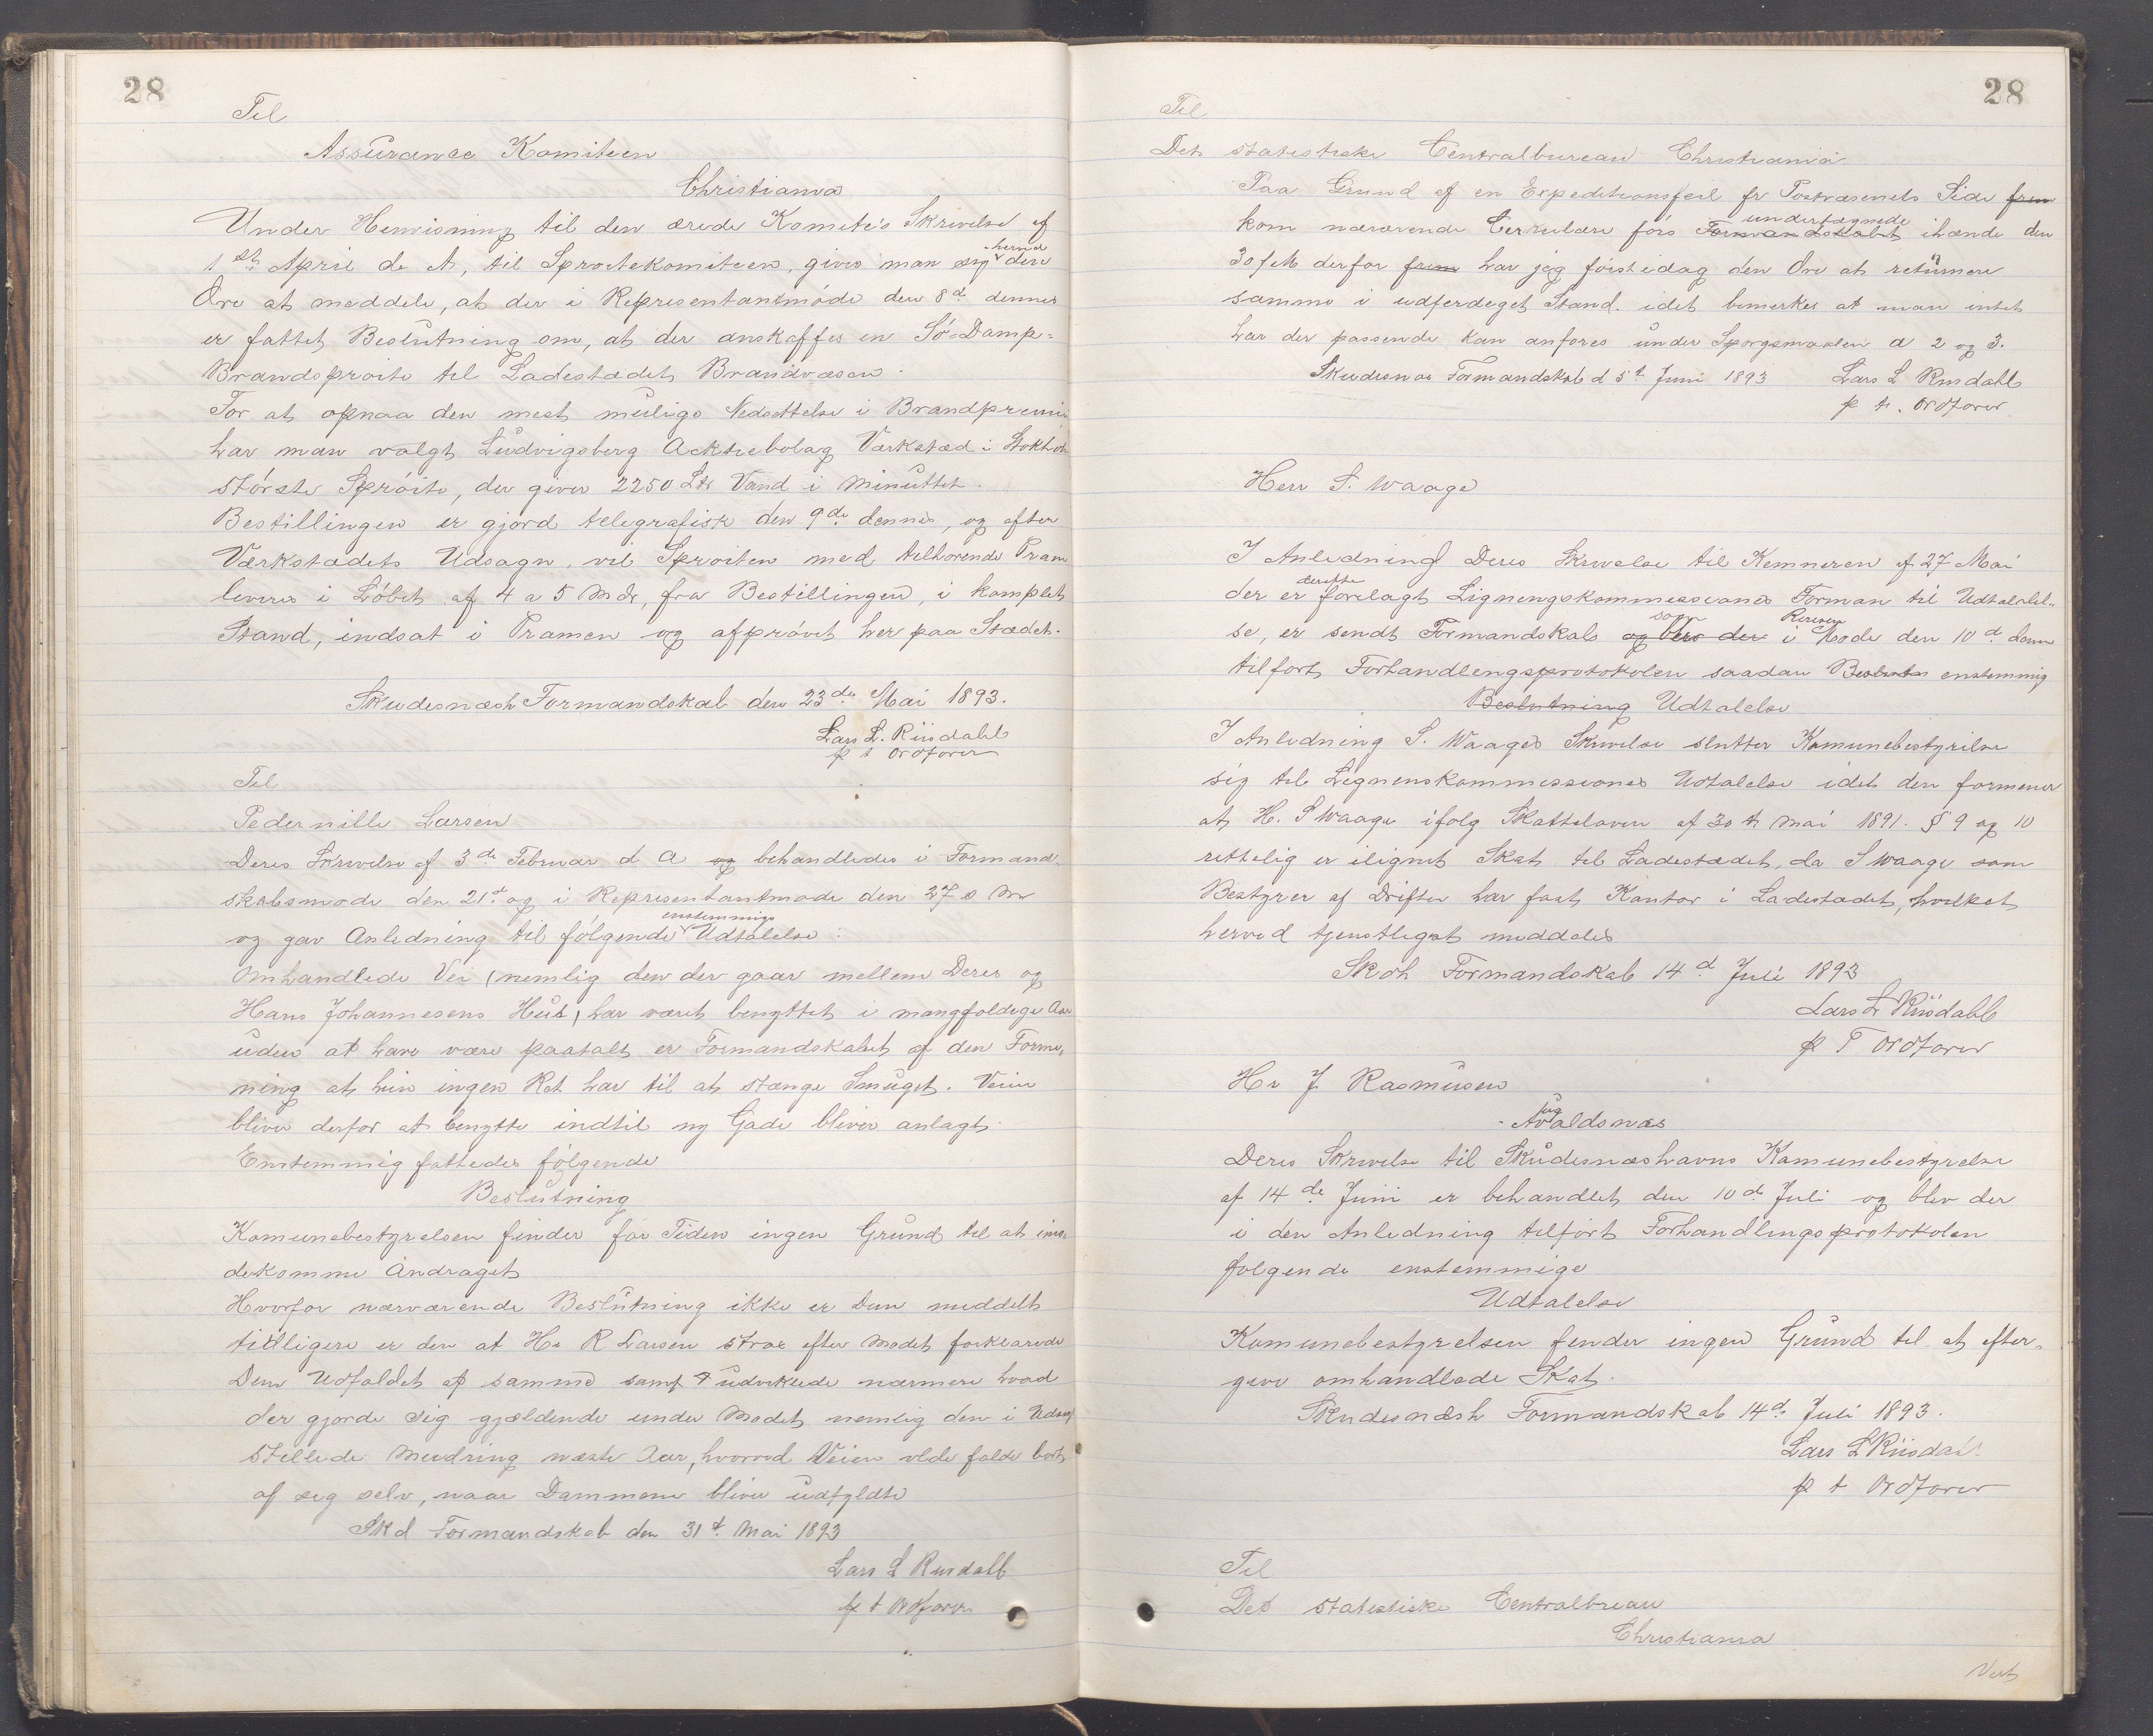 28
Til
Assurance Komiteen
Christiania
Under Henvisning til den ærede Komite's Skrivelse af
1ste April d. A, til Sprøitekomiteen, gives man sig herved den
Ære at meddele, at der i Representantmøde den 8de dennes
er fattet Beslutning om, at der anskaffes en Sø-Damp-
Brandsprøite til Ladestedets Brandvæsen.
For at opnaa den mest mulige Nedsættelse i Brandpremie
har man valgt Ludvigsberg Acktiebolag Værksted i Stokholm
største Sprøite, der giver 2250 Ltr Vand i Minuttet.
Bestillingen er gjord telegrafisk den 9de dennes, og efter
Værkstedets Udsagn, vil Sprøiten med tilhørende Pram
leveres i Løbet af 4 a 5 Mdr, fra Bestillingen, i komplet
Stand, indsat i Pramen og afprøvet her paa Stedet.
Skudesnæsh Formandskab den 23de Mai 1893.
Lars L. Riisdahl
p t Ordfører
Til
Pedernille Larsen
Deres Skrivelse af 3de Februar d A og behandledes i Formand-
skabsmøde den 21de og i Representantmøde den 27 s M
og gav Anledning til følgende enstemmige Udtalelse:
Omhandlede Vei (nemlig den der gaar mellem Deres og
Hans Johannesens Hus) har været benyttet i mangfoldige Aar
uden at have være paatalt er Formandskabet af den Forme-
ning at hun ingen Ret har til at stænge Smuget. Veien
bliver derfor at benytte indtil ny Gade bliver anlagt.
Enstemmig fattedes følgende
Beslutning
Komunebestyrelsen finder for Tiden ingen Grund til at imø-
dekomme Andraget
Hvorfor nærværende Beslutning ikke er Dem meddelt
tidligere er den at Hr R Larsen strax efter Mødet forklarede
Dem Udfaldet af samme samt udviklede nærmere hvad
der gjorde sig gjældende under Mødet nemlig den i Udsigt
stillede Mudring næste Aar, hvorved Veien vilde falde bort
af sig selv, naar Dammene bliver udfyldte
Skd Formandskab den 31te Mai 1893
Lars L Riisdahl
p t Ordfører
28
Til
Det statistiske Centralbureau Christiania
Paa Grund af en Expeditionsfeil fr Postvæsenets Side frem
kom nærværende Cirkulære førs Formandskabet undertegnede ihænde den
30 f M derfor frem har jeg først idag den Ære at retunere
samme i udferdeget Stand. idet bemerkes at man intet
har der passende kan anføres under Spørgsmaalen a 2 og 3.
Skudesnæs Formandskab d 5te Juni 1893 Lars L Riisdahl
p t. Ordfører
Herr S. Waage
I Anledning Deres Skrivelse til Kemneren af 27 Mai
der er derefter forelagt Ligningskommissionens Forman til Udtalel-
se, er sendt Formandskab og blev der som i Møde den 10de denn
tilført Forhandlingsprotokolen saadan Beslutn enstemmig
Beslutning Udtalelse
I Anledning S. Waages Skrivelse slutter Komunebestyrelse
sig til Ligninskommissiones Udtalelse idet den formener
at H. S Waage ifølg Skatteloven af 30te Mai 1891. § 9 og 10
rettelig er ilignet Skat til Ladestedet, da S Waage som
Bestyrer af Driften har fast Kontor i Ladestedet, hvilket
herved tjenstligst meddeles
Skdh Formandskab 14de Juli 1893
Lars L Riisdahl
p T Ordfører
Hr J Rasmusen
Avaldsnæs
Deres Skrivelse til Skudesnæshavns Komunebestyrelse
af 14de Juni er behandlet den 10de Juli og blev der
i den Anledning tilført Forhandlingsprotokolen
følgende enstemmige
Udtalelse
Komunebestyrelsen finder ingen Grund til at efter-
give omhandlede Skat.
Skudesnæsh Formandskab 14de Juli 1893.
Lars L Riisdal
p t Ordfører
Til
Det statistiske Centralbreau
Christiania